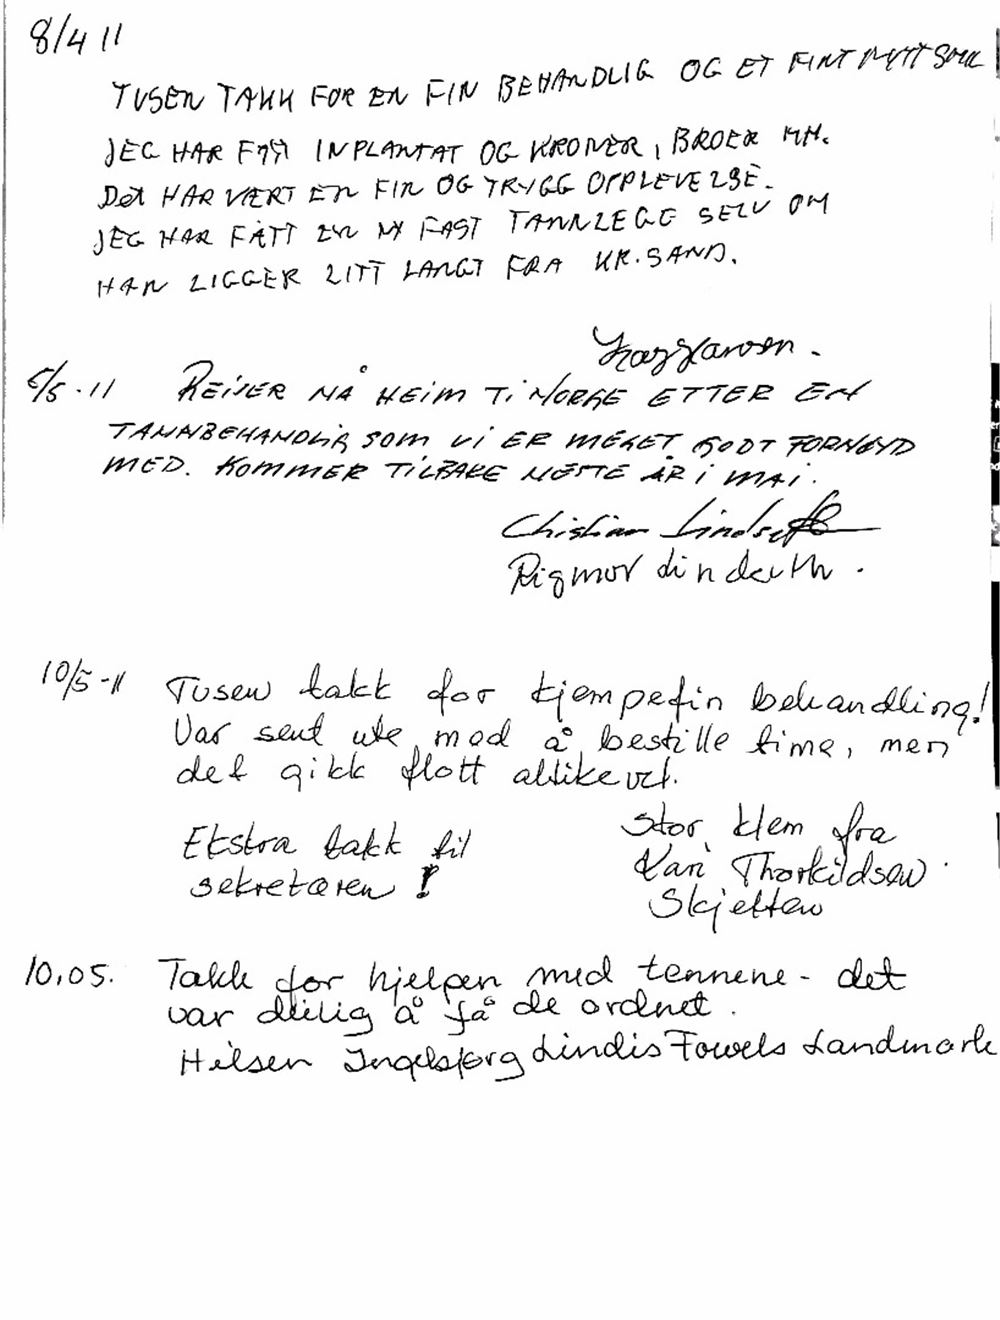 8/4 11
TUSEN TAKK FOR EN FIN BEHANDLIG OG ET FINT NYTT SMIL
JEG HAR FÅTT INPLANTAT OG KRONER, BROER MM.
Det HAR VÆRT EN FIN OG TRYGG OPPLEVELSE.
JEG HAR FÅTT EN NY FAST TANNLEGE SELV OM
HAN LIGGER LITT LANGT FRA KR.SAND.
5/5-11 REISER NÅ HEIM Ti NORGE ETTER EN
TANNBEHANDLiG SOM Vi ER MEGET GODT FORNØYD
MED. KOMMER TiLBAKE NESTE ÅR i MAi.
Christian
Rigmor
10/5-11 Tusen takk for kjempefin behandling!
Var sent ute med å bestille time, men
det gikk flott allikevel.
Ekstra takk til
sekretæren!
Stor klem fra
Kari Thorkildsen
Skjetten
10.05. Takk for hjelpen med tennene - det
var deilig å få de ordnet.
Hilsen Ingebjørg Lindis Fowels Landmark